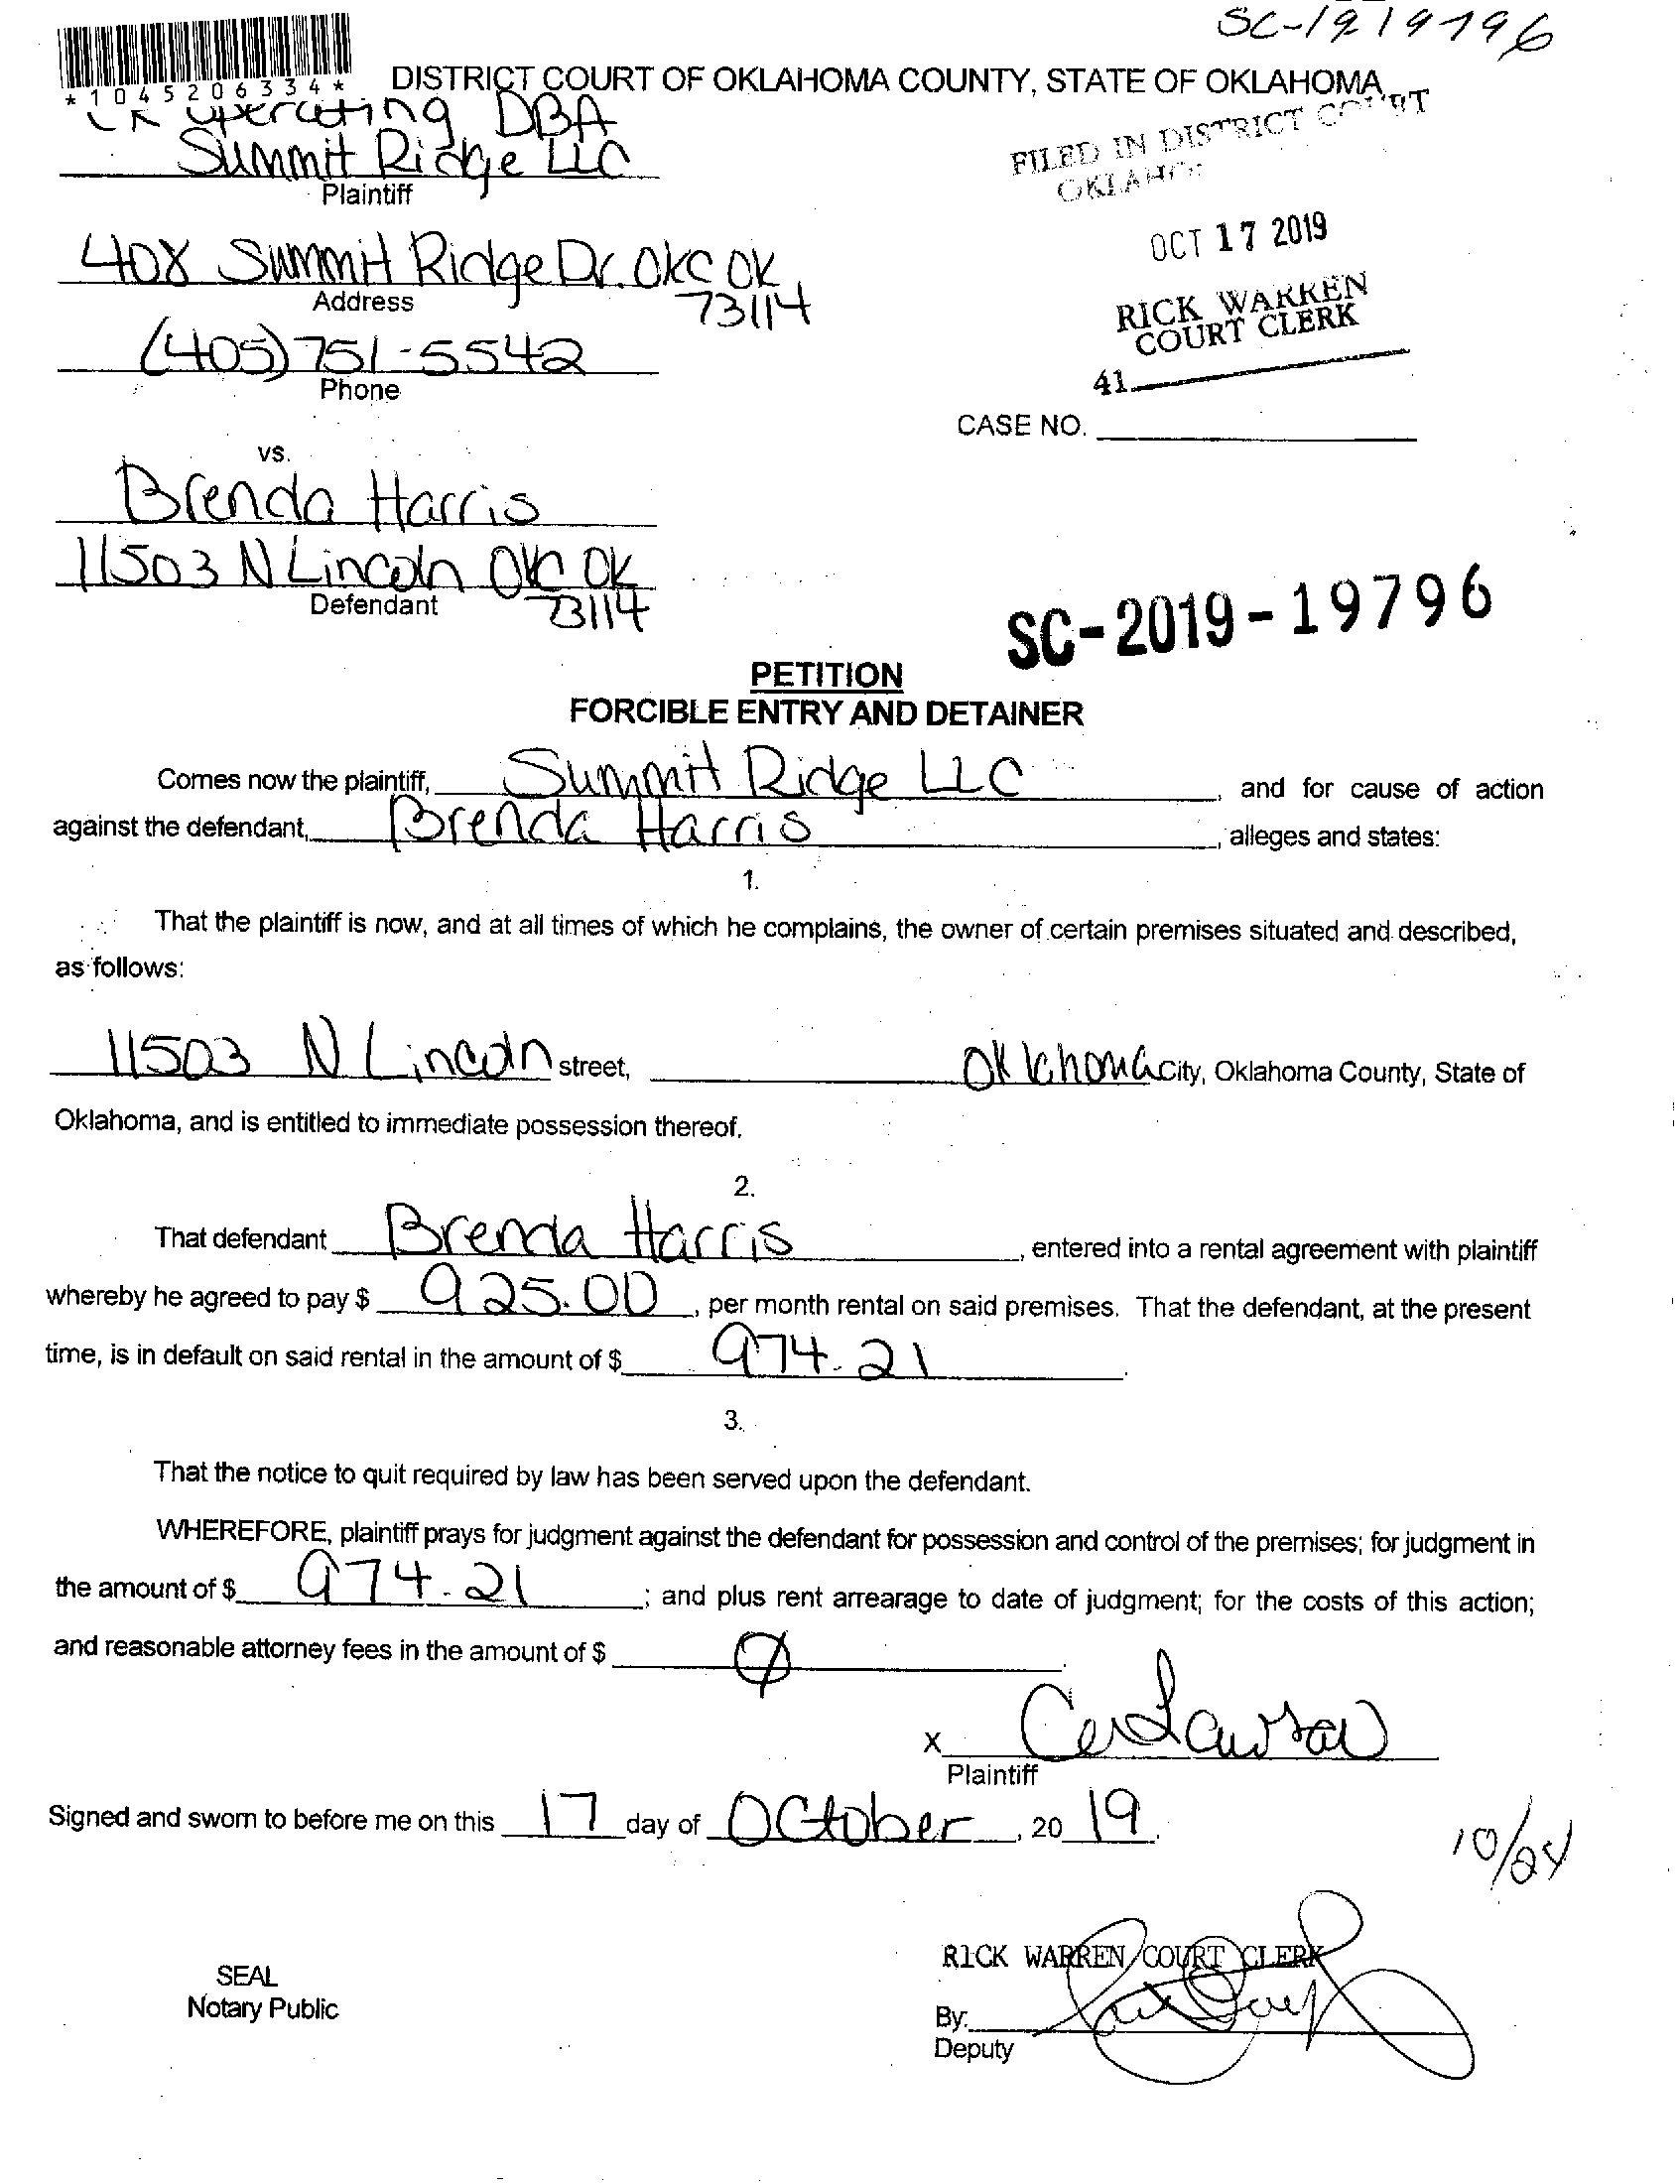 SC-1919796
*1045206334*
DISTRICT COURT OF OKLAHOMA COUNTY, STATE OF OKLAHOMA
operating DBA
Summit Ridge LLC
Plaintiff
FILED IN DISTRICT COURT
408 Summit Ridge Dr. OKC OK
73114
Address
OCT 17 2019
RICK WARREN
COURT CLERK
(405) 751-5542
Phone
41
CASE NO.
vs.
Brenda Harris
11503 N Lincoln OKC OK
73114
Defendant
SC-2019-19796
PETITION
FORCIBLE ENTRY AND DETAINER
Comes now the plaintiff, Summit Ridge LLC, and for cause of action
against the defendant, Brenda Harris, alleges and states:
1.
That the plaintiff is now, and at all times of which he complains, the owner of certain premises situated and described,
as follows:
11503 N Lincoln street, Oklahoma City, Oklahoma County, State of
Oklahoma, and is entitled to immediate possession thereof.
2.
That defendant Brenda Harris, entered into a rental agreement with plaintiff
whereby he agreed to pay $ 925.00, per month rental on said premises. That the defendant, at the present
time, is in default on said rental in the amount of $ 974.21.
3.
That the notice to quit required by law has been served upon the defendant.
WHEREFORE, plaintiff prays for judgment against the defendant for possession and control of the premises; for judgment in
the amount of $ 974.21; and plus rent arrearage to date of judgment; for the costs of this action;
and reasonable attorney fees in the amount of $ Ø.
X
Plaintiff
Signed and sworn to before me on this 17 day of October, 20 19.
10/24
SEAL
Notary Public
RICK WARREN COURT CLERK
By:
Deputy